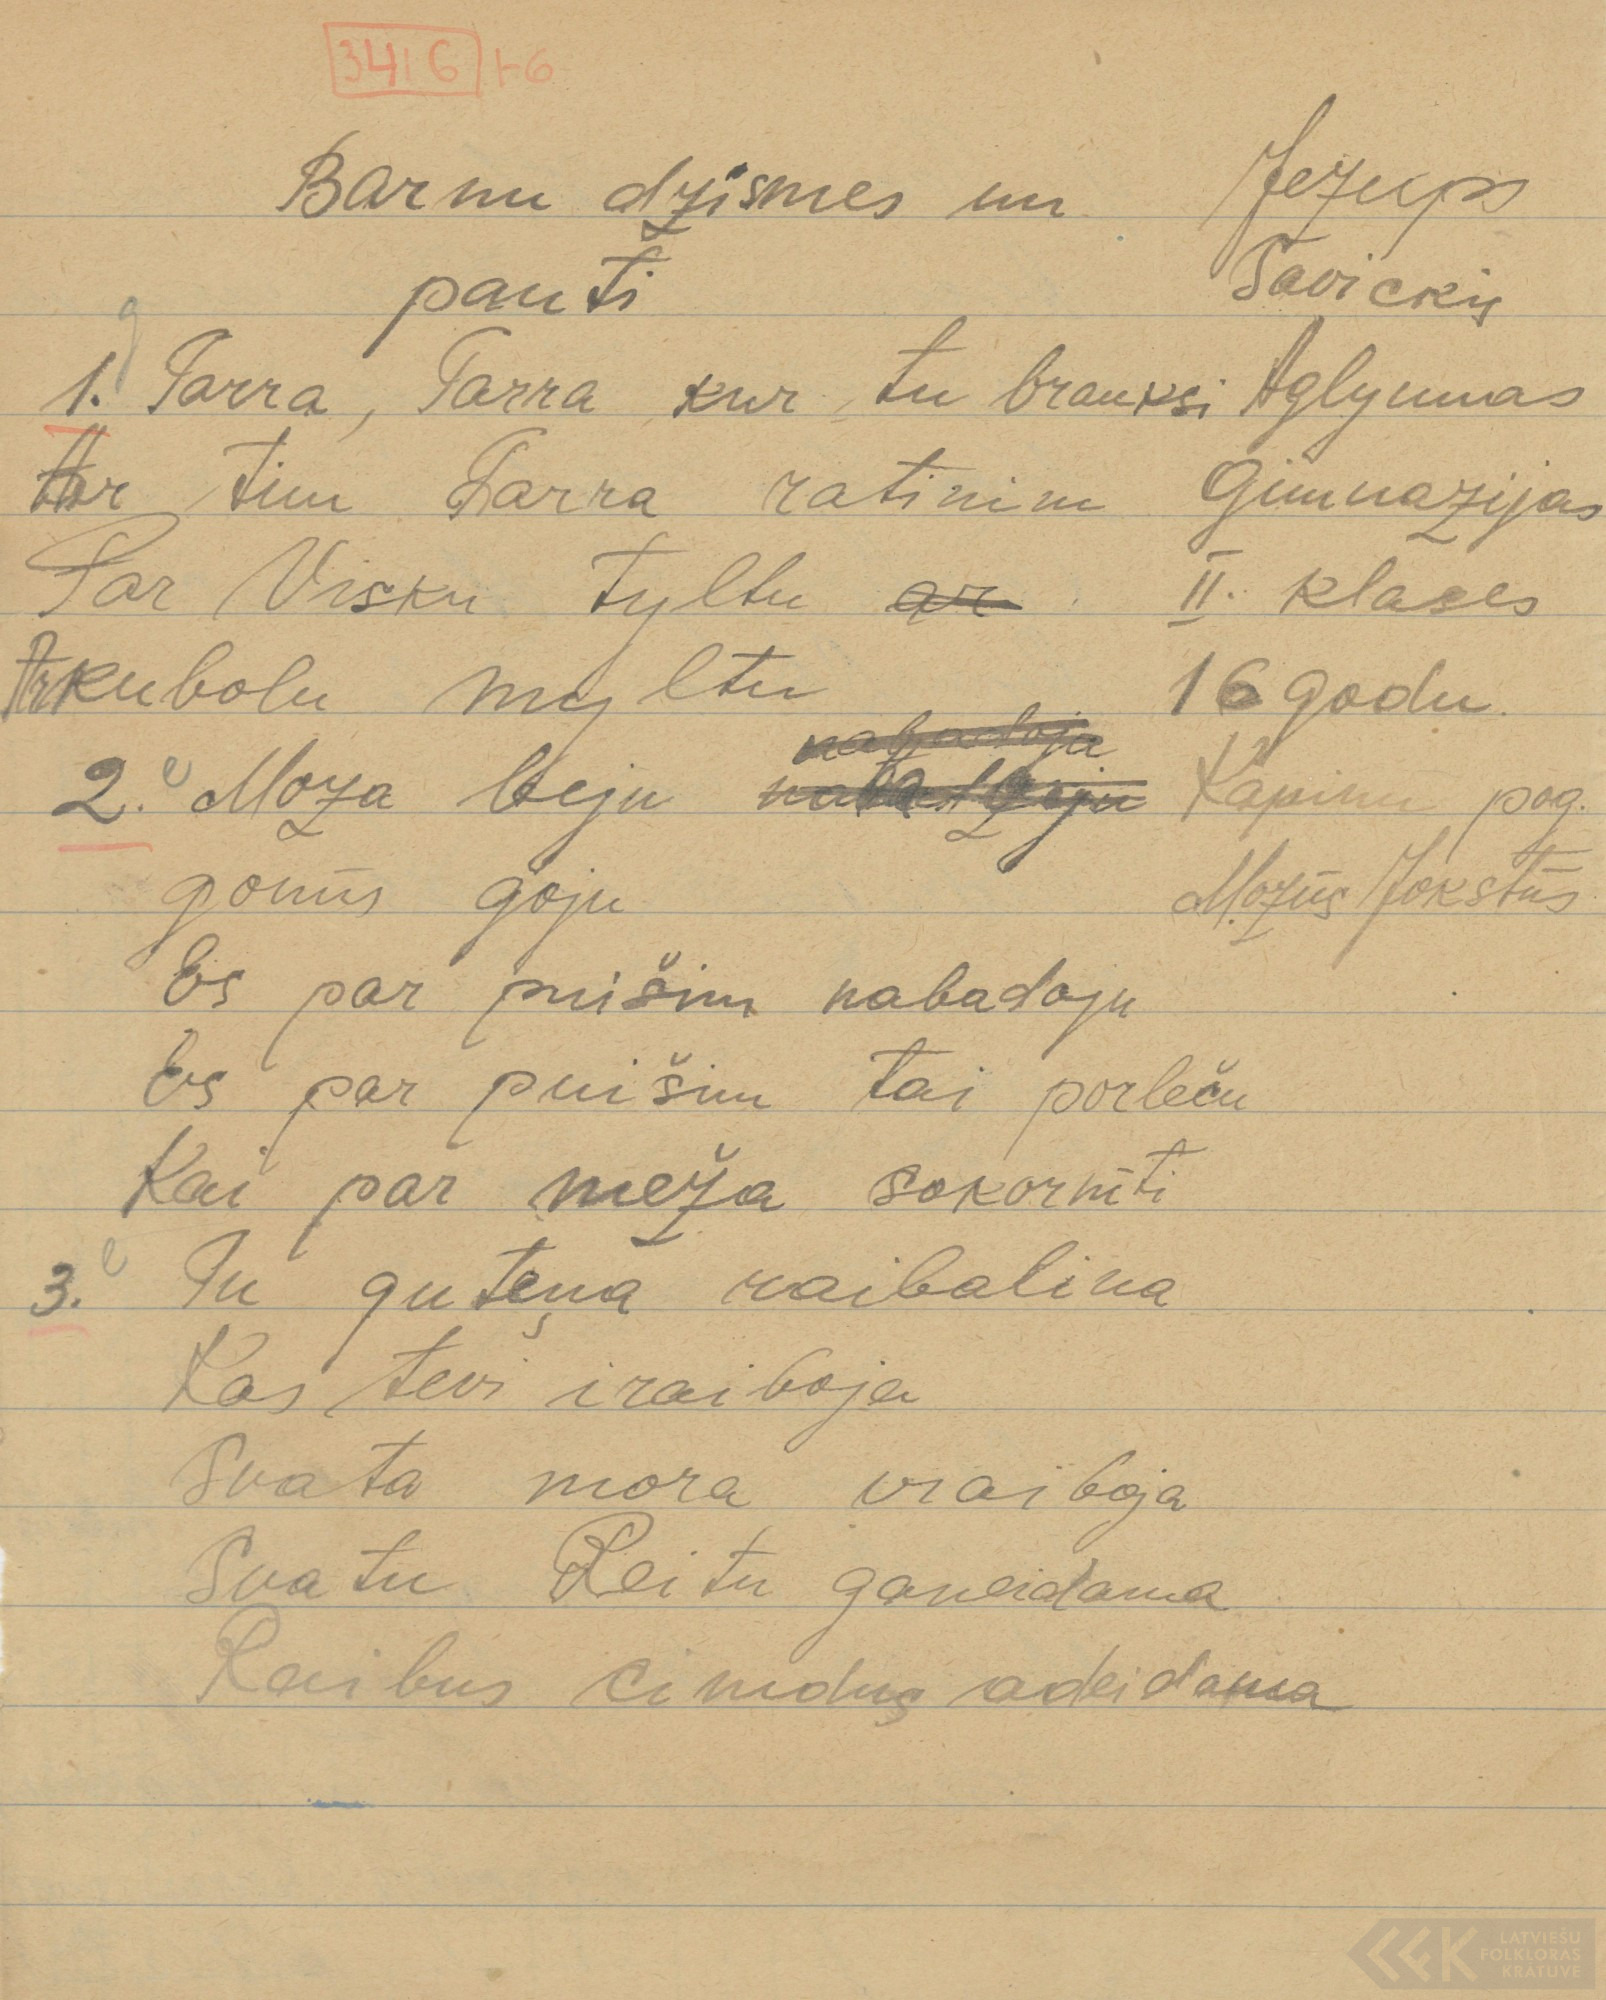 3416 1-6
Barnu dzismes un
panti
Jezups
Savickis
Aglyunas
Gimnazijas
II. klases
16 godu
Kapinu pog.
Mozūs Jokstūs
g
1. Tarra, Tarra kur tu brauksi
Ar tim Tarra ratinim
Par Visku tyltu ar
Ar kubolu myltu
nabadoju
2. e Moza beju
gonūs goju
Es par puišim nabadoju
Es par puišim tai porleču
Kai par meža sokormīti
3. e Tu guteņa raibalina
Kas tevi iraiboja
Svata mora vraiboja
Svatu Reitu ganeidama
Raibus cimdus adeidama
LATVIEŠU
FOLKLORAS
KRĀTUVE